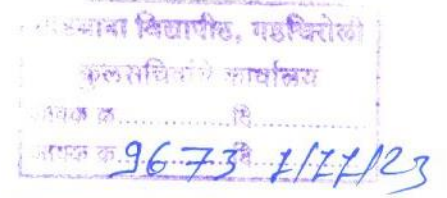 गोंडवाना विद्यापीठ, गडचिरोली
कुलसचिवांचे कार्यालय
आवक क्र............दि............
जावक क्र. 9673 दि. 1/11/23